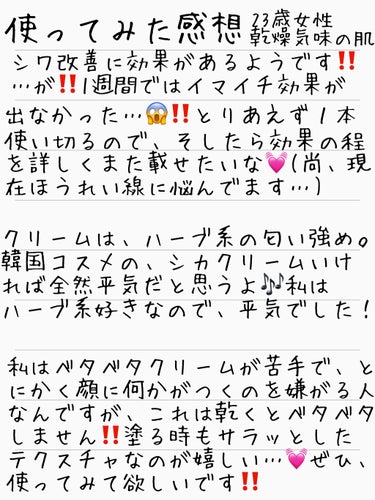 使ってみた感想 23歳女性
乾燥気味の肌
シワ改善に効果があるようです‼️
…が‼️1週間ではイマイチ効果が
出なかった…😱‼️とりあえず1本
使い切るので、そしたら効果の程
を詳しくまた載せたいな💓(尚、現
在ほうれい線に悩んでます…)
クリームは、ハーブ系の匂い強め。
韓国コスメの、シカクリームいけ
れば全然平気だと思うよ🎶私は
ハーブ系好きなので、平気でした！
私はベタベタクリームが苦手で、と
にかく顔に何かがつくのを嫌がる人
なんですが、これは乾くとベタベタ
しません‼️塗る時もサラッとした
テクスチャなのが嬉しい…💓ぜひ、
使ってみて欲しいです‼️